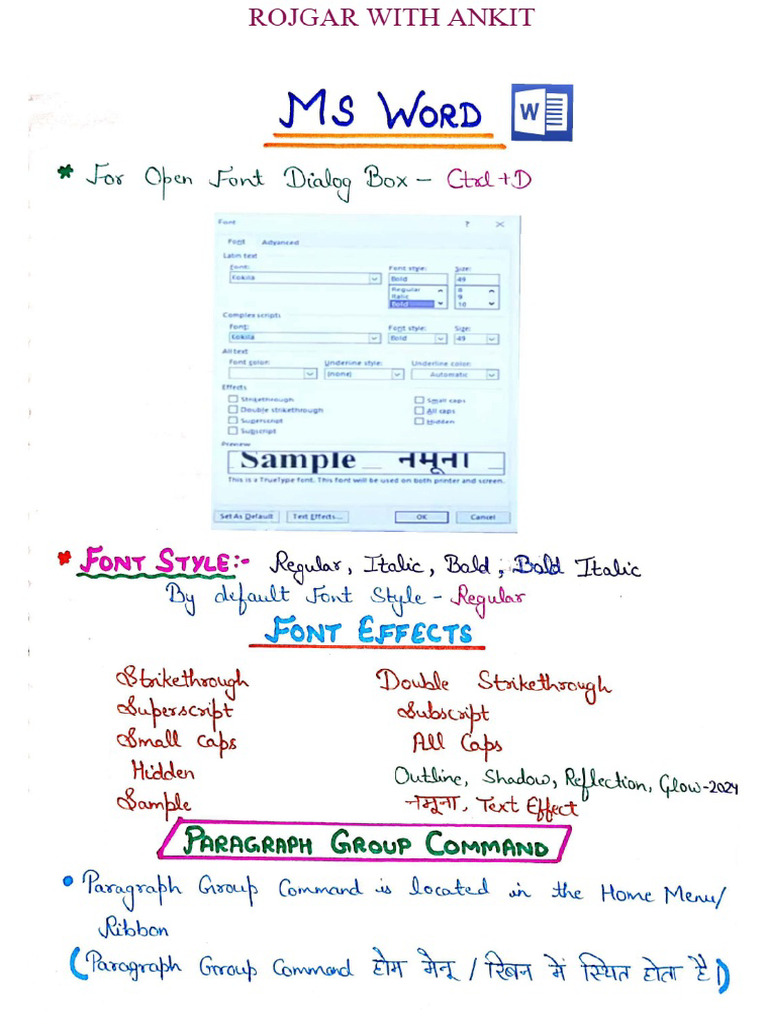 ROJGAR WITH ANKIT
MS WORD
W
* For Open Font Dialog Box – Ctrl+D
Font ? ×
Font Advanced
Latin text
Font: Font style: Size:
Kokila Bold 49
Regular 8
Italic 9
Bold 10
Complex scripts
Font: Font style: Size:
Kokila Bold 49
All text
Font color: Underline style: Underline color:
(none) Automatic
Effects
Strikethrough Small caps
Double strikethrough All caps
Superscript Hidden
Subscript
Preview
Sample नमूना
This is a TrueType font. This font will be used on both printer and screen.
Set As Default Text Effects... OK Cancel
* FONT STYLE:- Regular, Italic, Bold, Bold Italic
By default Font Style - Regular
FONT EFFECTS
Strikethrough Double Strikethrough
Superscript Subscript
Small caps All Caps
Hidden Outline, Shadow, Reflection, Glow-2024
Sample नमूना, Text Effect
PARAGRAPH GROUP COMMAND
• Paragraph Group Command is located in the Home Menu/
Ribbon
(Paragraph Group Command होम मेनू / रिबन में स्थित होता है।)